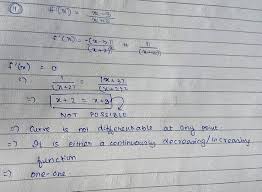 f(x) = x-3 / x+2
f'(x) = -(x-3) / (x+2)² + 1 / (x+2)
f'(x) = 0
⇒ 1 / (x+2) =
⇒ x+2 = x+3
NOT POSSIBLE
⇒ Curve is not differentiable at any point.
⇒ It is either a continuously decreasing/increasing
function
⇒ one-one.